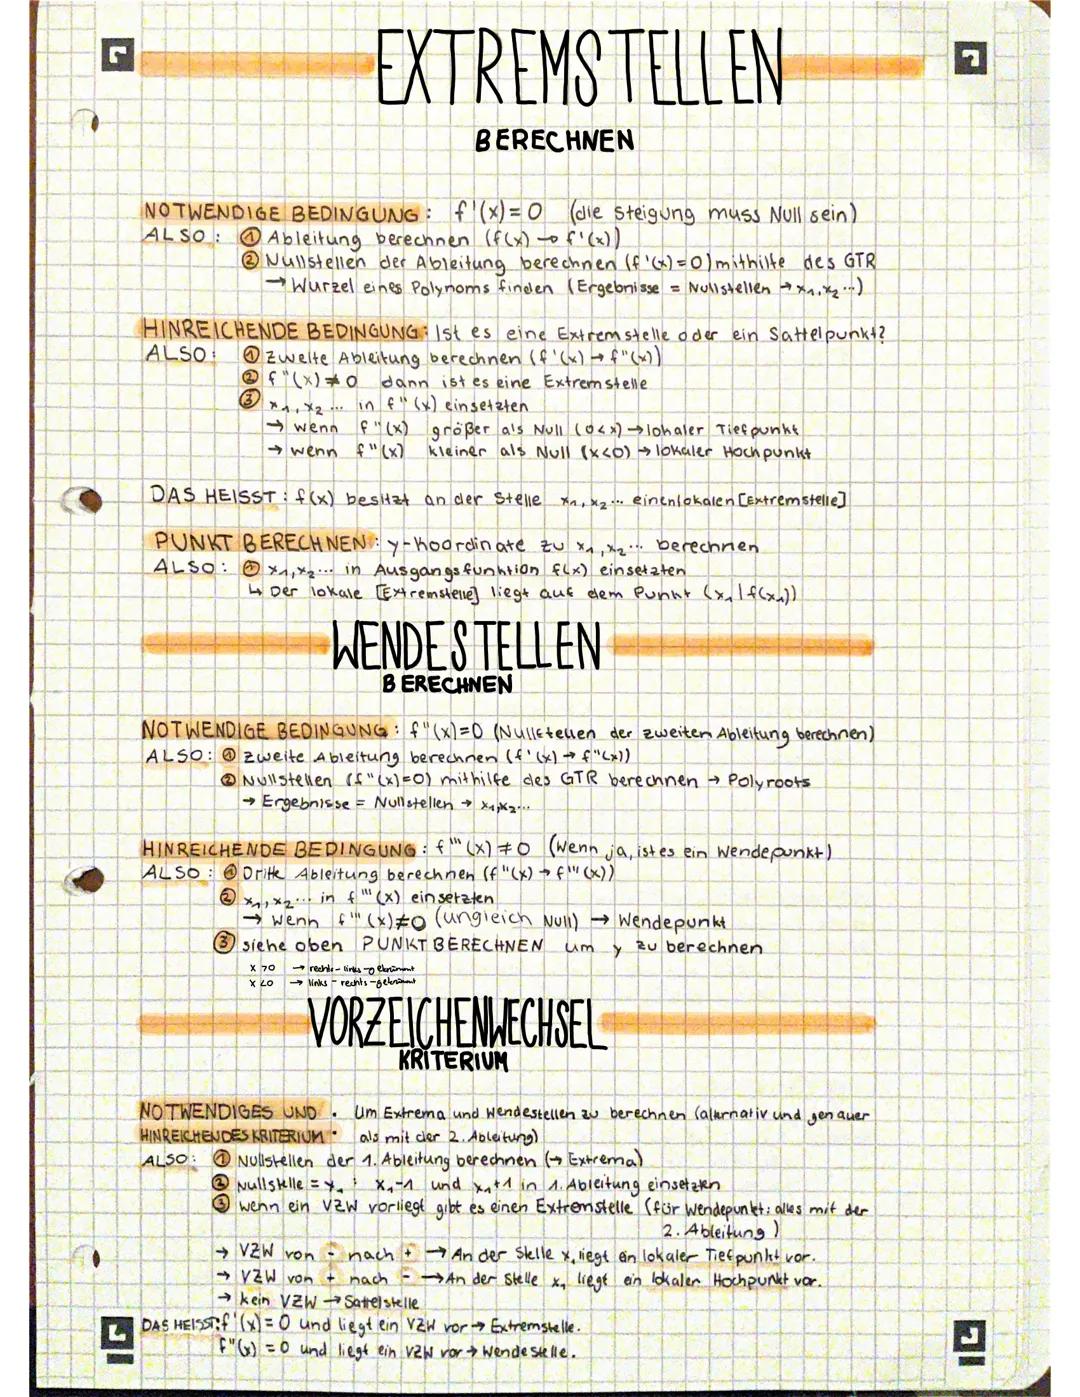 EXTREMSTELLEN
BERECHNEN
NOTWENDIGE BEDINGUNG: f'(x)=0 (die Steigung muss Null sein)
ALSO: ① Ableitung berechnen (f(x) → f'(x))
② Nullstellen der Ableitung berechnen (f'(x)=0) mithilfe des GTR
→ Wurzel eines Polynoms finden (Ergebnisse = Nullstellen → x₁,x₂...)
HINREICHENDE BEDINGUNG: Ist es eine Extremstelle oder ein Sattelpunkt?
ALSO: ① zweite Ableitung berechnen (f'(x) → f"(x))
② f"(x)≠0 dann ist es eine Extremstelle
③ x₁,x₂... in f"(x) einsetzten
→ wenn f"(x) größer als Null (0<x) → lokaler Tiefpunkt
→ wenn f"(x) kleiner als Null (x<0) → lokaler Hochpunkt
DAS HEISST: f(x) besitzt an der Stelle x₁,x₂... einen lokalen [Extremstelle]
PUNKT BERECHNEN: y-Koordinate zu x₁,x₂... berechnen
ALSO: ① x₁,x₂... in Ausgangsfunktion f(x) einsetzten
↳ Der lokale [Extremstelle] liegt auf dem Punkt (x₁|f(x₁))
WENDESTELLEN
BERECHNEN
NOTWENDIGE BEDINGUNG: f"(x)=0 (Nullstellen der zweiten Ableitung berechnen)
ALSO: ① zweite Ableitung berechnen (f'(x) → f"(x))
② Nullstellen (f"(x)=0) mithilfe des GTR berechnen → Polyroots
→ Ergebnisse = Nullstellen → x₁,x₂...
HINREICHENDE BEDINGUNG: f'''(x) ≠ 0 (Wenn ja, ist es ein Wendepunkt)
ALSO: ① Dritte Ableitung berechnen (f"(x) → f'''(x))
② x₁,x₂... in f'''(x) einsetzten
→ wenn f'''(x)≠0 (ungleich Null) → Wendepunkt
③ siehe oben PUNKT BERECHNEN um y zu berechnen
x >0 → rechts-links-gekrümmt
x <0 → links-rechts-gekrümmt
VORZEICHENWECHSEL
KRITERIUM
NOTWENDIGES UND : Um Extrema und Wendestellen zu berechnen (alternativ und genauer
HINREICHENDES KRITERIUM als mit der 2. Ableitung)
ALSO: ① Nullstellen der 1. Ableitung berechnen (→ Extrema)
② Nullstelle = x₁ : x₁-1 und x₁+1 in 1. Ableitung einsetzten
③ wenn ein VZW vorliegt gibt es einen Extremstelle (für Wendepunkt: alles mit der
2. Ableitung)
→ VZW von - nach + → An der Stelle x₁ liegt ein lokaler Tiefpunkt vor.
→ VZW von + nach - → An der Stelle x₁ liegt ein lokaler Hochpunkt vor.
→ kein VZW → Sattelstelle
DAS HEISST: f'(x) = 0 und liegt ein VZW vor → Extremstelle.
f"(x) = 0 und liegt ein VZW vor → Wendestelle.